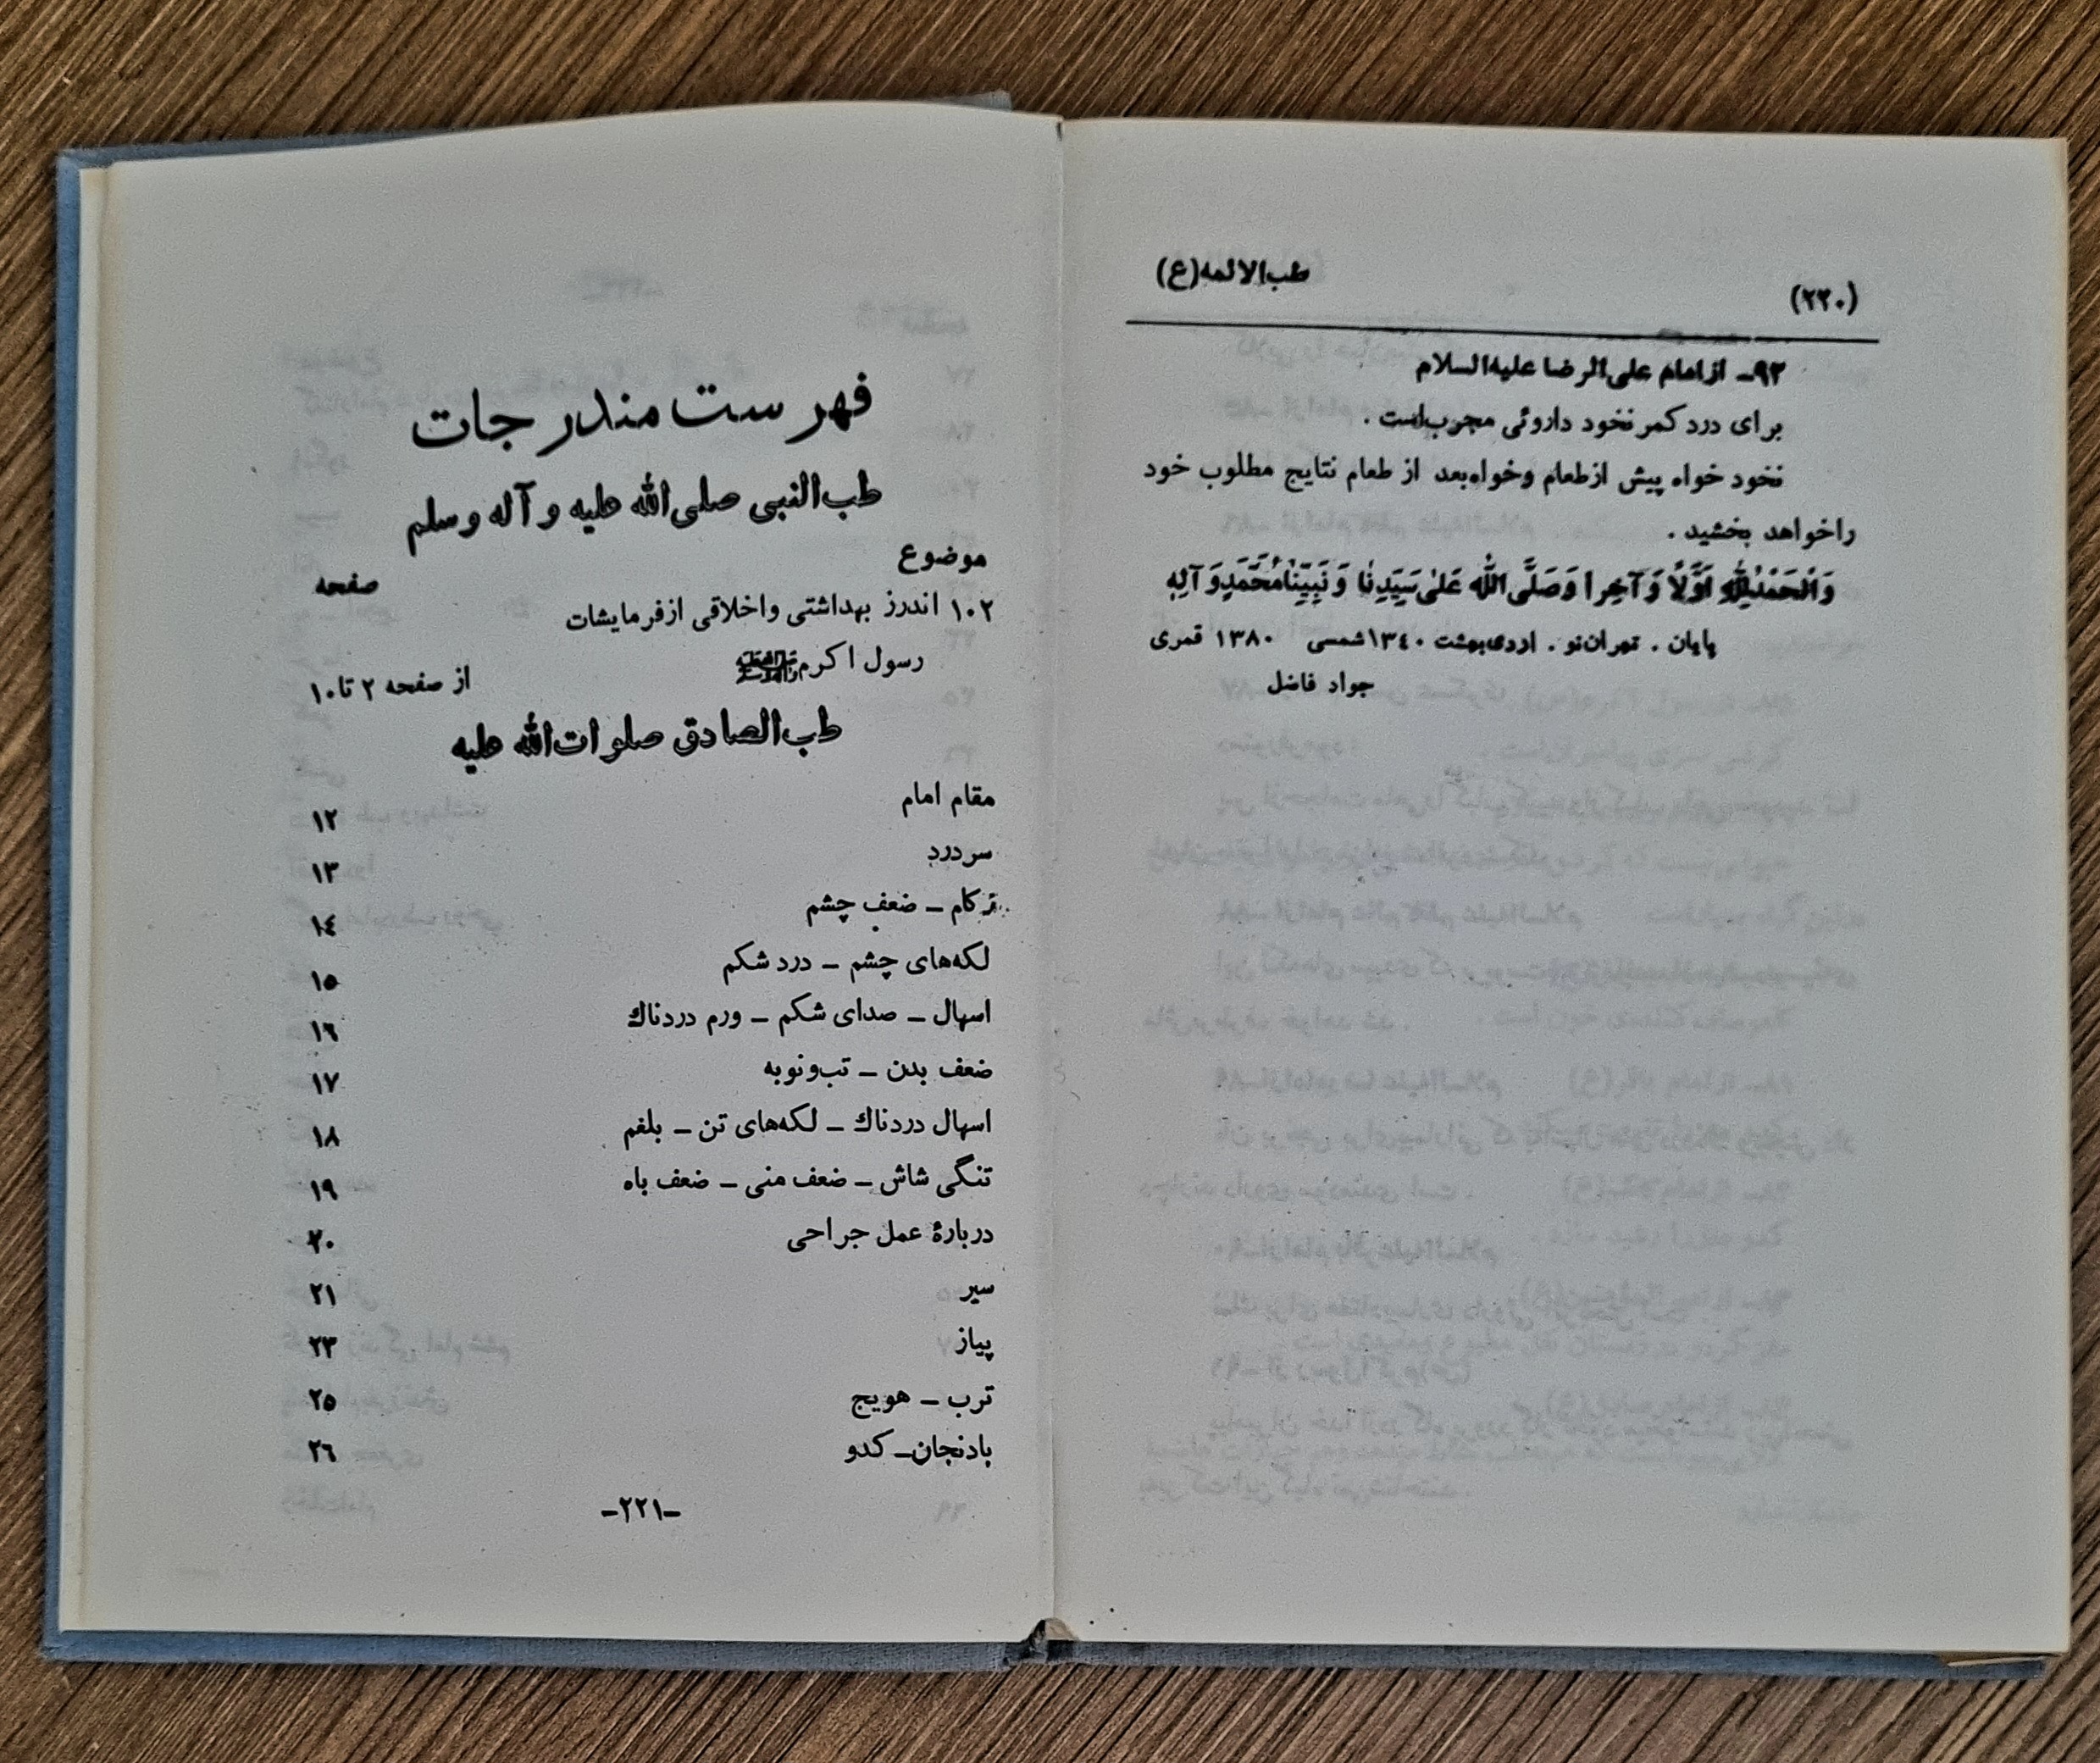 (۲۲۰)
طب‌الائمه(ع)
۹۲ـ ازامام علی‌الرضا علیه‌السلام
برای درد کمر نخود داروئی مجرب‌است .
نخود خواه پیش ازطعام وخواه‌بعد از طعام نتایج مطلوب خود
راخواهد بخشید .
وَالْحَمْدُلِلّٰهِ اَوَّلاً وَ آخِراً وَصَلَّی‌اللّٰه عَلیٰ سَیِّدِنٰا وَ نَبِیِّنٰامُحَمَّدٍوَ آلِهِ
پایان . تهران‌نو . اردی‌بهشت ۱۳٤۰شمسی ۱۳۸۰ قمری
جواد فاضل
فهرست مندرجات
طب‌النبی صلی‌الله علیه و آله وسلم
موضوع
صفحه
۱۰۲ اندرز بهداشتی واخلاقی ازفرمایشات
رسول اکرم از صفحه ۲ تا۱۰
طب‌الصادق صلوات‌الله علیه
مقام امام ۱۲
سردرد ۱۳
زکام ـ ضعف چشم ۱٤
لکه‌های چشم ـ درد شکم ۱۵
اسهال ـ صدای شکم ـ ورم دردناك ۱٦
ضعف بدن ـ تب‌ونوبه ۱۷
اسهال دردناك ـ لکه‌های تن ـ بلغم ۱۸
تنگی شاش ـ ضعف منی ـ ضعف باه ۱۹
دربارهٔ عمل جراحی ۲۰
سیر ۲۱
پیاز ۲۳
ترب ـ هویج ۲۵
بادنجان‌ـ کدو ۲٦
ـ۲۲۱ـ